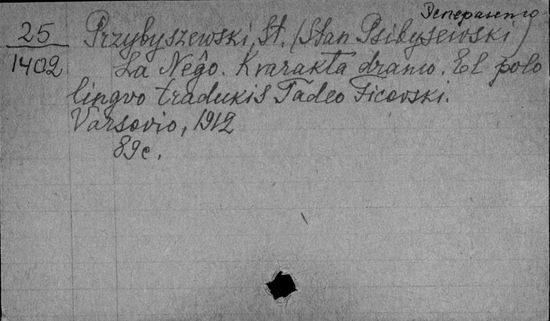 Эсперанто
25
1402
Przybyszewski, St. (Stan Psibysevski)
La Neĝo. Kvarakta dramo. El pola
lingvo tradukis Tadeo Ficovski.
Varsovio, 1912
89c.